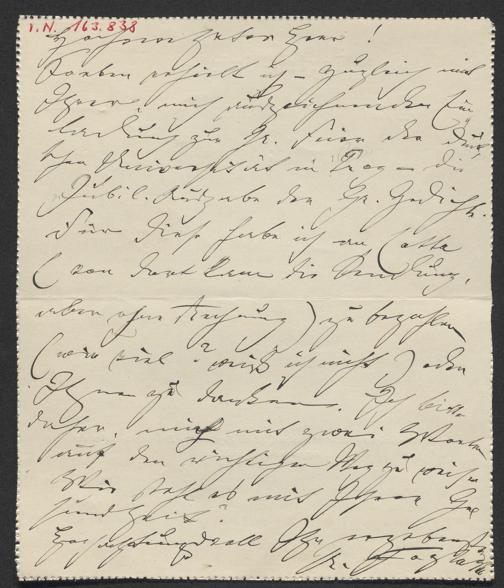 I.N. 163.838
Hochverehrter Herr!
Soeben erhielt ich – zugleich mit
Ihrer, mich auszeichnenden Ein
ladung zur Gr. Feier der deut
schen Universität in Prag – die
Jubil. Ausgabe der Gr. Gedichte.
Für diese habe ich an Cotta
(von dort kam die Sendung,
aber ohne Rechnung) zu bezahlen
(wie viel? weiß ich nicht) oder
Ihnen zu danken. Ich bitte
daher, mich mit zwei Worten
auf den richtigen Weg zu weisen.
Wie steht es mit Ihrer Ge
sundheit?
Hochachtungsvoll Ihr ergebenster